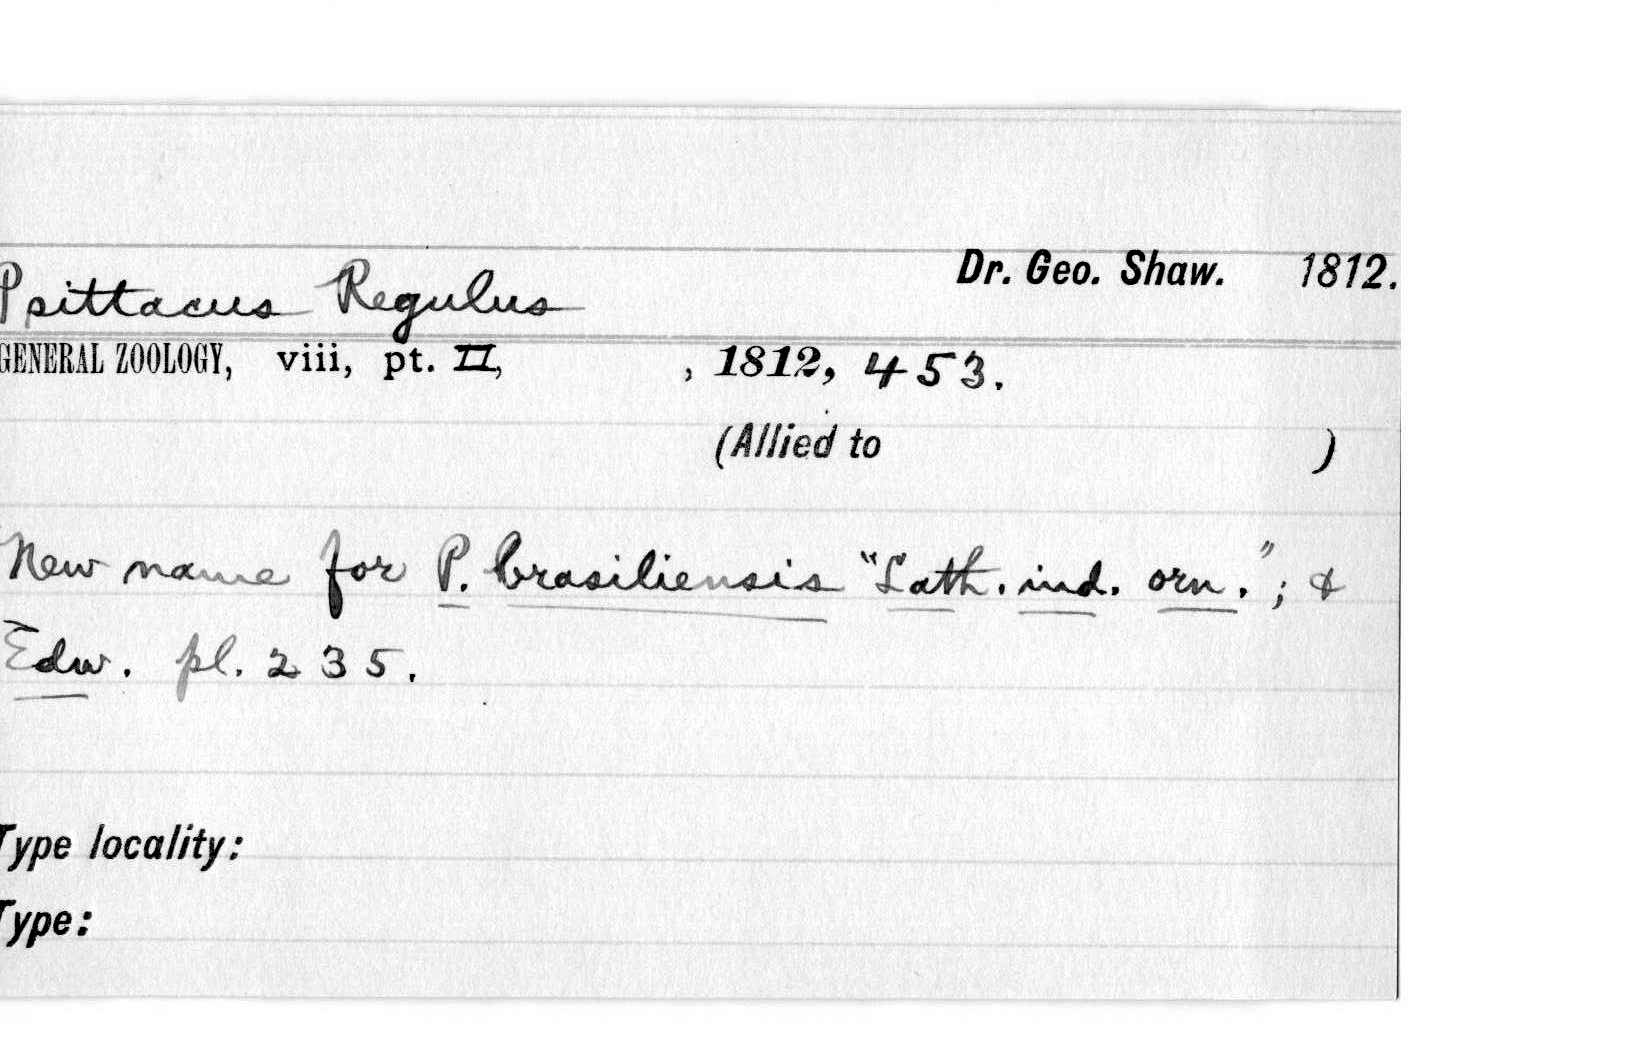 Dr. Geo. Shaw. 1812.
Psittacus Regulus
GENERAL ZOOLOGY, viii, pt. II, , 1812, 453.
(Allied to )
New name for P. brasiliensis "Lath. ind. orn."; &
Edw. pl. 235.
Type locality:
Type: